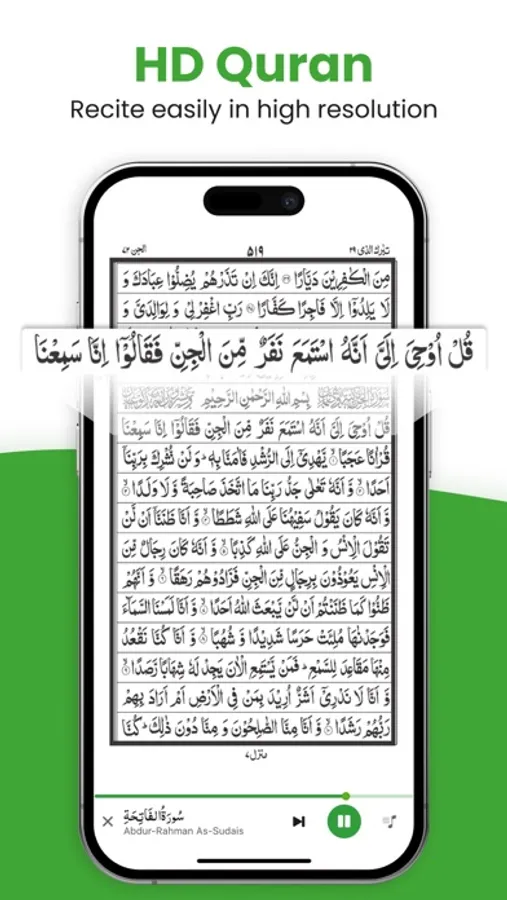 HD Quran
Recite easily in high resolution
الجن ٧٢ ٥١٩ تبٰرك الذی ٢٩
مِنَ الْكٰفِرِیْنَ دَیَّارًا ۟ اِنَّكَ اِنْ تَذَرْهُمْ یُضِلُّوْا عِبَادَكَ وَ
لَا یَلِدُوْۤا اِلَّا فَاجِرًا كَفَّارًا ۟ رَبِّ اغْفِرْ لِیْ وَ لِوَالِدَیَّ وَ
قُلْ اُوْحِیَ اِلَیَّ اَنَّهُ اسْتَمَعَ نَفَرٌ مِّنَ الْجِنِّ فَقَالُوْۤا اِنَّا سَمِعْنَا
بِسْمِ اللّٰهِ الرَّحْمٰنِ الرَّحِیْمِ
قُلْ اُوْحِیَ اِلَیَّ اَنَّهُ اسْتَمَعَ نَفَرٌ مِّنَ الْجِنِّ فَقَالُوْۤا اِنَّا سَمِعْنَا
قُرْاٰنًا عَجَبًا ۟ یَّهْدِیْۤ اِلَی الرُّشْدِ فَاٰمَنَّا بِهٖ ؕ وَ لَنْ نُّشْرِكَ بِرَبِّنَاۤ
اَحَدًا ۟ وَّ اَنَّهٗ تَعٰلٰی جَدُّ رَبِّنَا مَا اتَّخَذَ صَاحِبَةً وَّ لَا وَلَدًا ۟
وَّ اَنَّهٗ كَانَ یَقُوْلُ سَفِیْهُنَا عَلَی اللّٰهِ شَطَطًا ۟ وَّ اَنَّا ظَنَنَّاۤ اَنْ لَّنْ
تَقُوْلَ الْاِنْسُ وَ الْجِنُّ عَلَی اللّٰهِ كَذِبًا ۟ وَّ اَنَّهٗ كَانَ رِجَالٌ مِّنَ
الْاِنْسِ یَعُوْذُوْنَ بِرِجَالٍ مِّنَ الْجِنِّ فَزَادُوْهُمْ رَهَقًا ۟ وَّ اَنَّهُمْ
ظَنُّوْا كَمَا ظَنَنْتُمْ اَنْ لَّنْ یَّبْعَثَ اللّٰهُ اَحَدًا ۟ وَّ اَنَّا لَمَسْنَا السَّمَآءَ
فَوَجَدْنٰهَا مُلِئَتْ حَرَسًا شَدِیْدًا وَّ شُهُبًا ۟ وَّ اَنَّا كُنَّا نَقْعُدُ
مِنْهَا مَقَاعِدَ لِلسَّمْعِ ؕ فَمَنْ یَّسْتَمِعِ الْاٰنَ یَجِدْ لَهٗ شِهَابًا رَّصَدًا ۟
وَّ اَنَّا لَا نَدْرِیْۤ اَشَرٌّ اُرِیْدَ بِمَنْ فِی الْاَرْضِ اَمْ اَرَادَ بِهِمْ
رَبُّهُمْ رَشَدًا ۟ وَّ اَنَّا مِنَّا الصّٰلِحُوْنَ وَ مِنَّا دُوْنَ ذٰلِكَ ؕ كُنَّا
منزل ٧
سُوْرَةُ الْفَاتِحَةِ
Abdur-Rahman As-Sudais